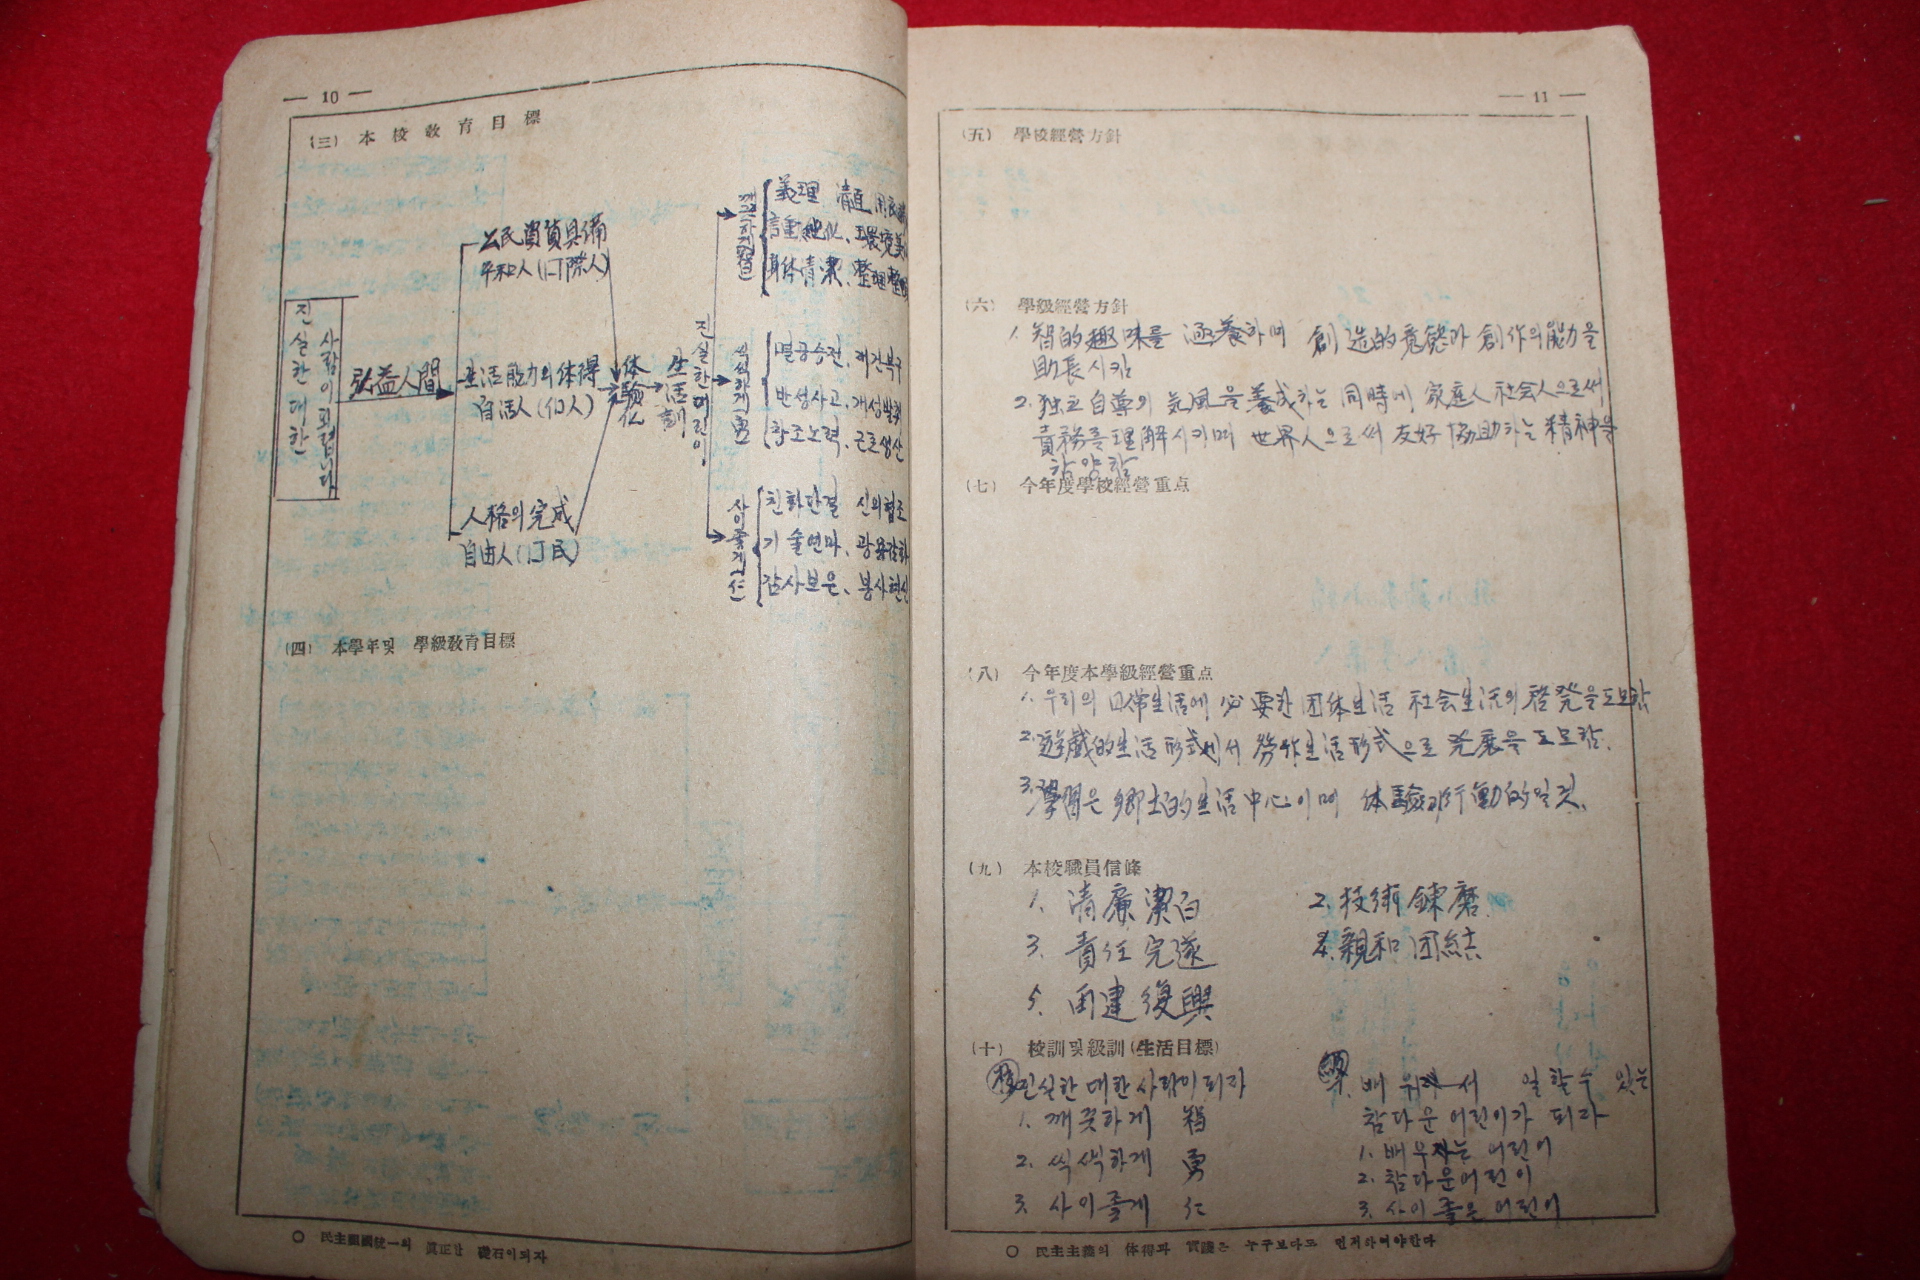 — 10 —
(三) 本校敎育目標
진실한 대한
사람이 되렵니다
弘益人間
公民資質具備
平和人(国際人)
生活能力의 体得
自活人(個人)
人格의 完成
自由人(国民)
体驗化
生活訓
진실한 어린이
깨끗하게(智)
義理 清直
身体清潔、整理整頓
씩씩하게(勇)
멸공승전、재건복구
반성사고、개성발휘
창조노력、근로생산
사이좋게(仁)
친화단결 신의협조
기술연마、
감사보은、봉사헌신
(四) 本學年및 學級敎育目標
○ 民主祖國統一의 眞正한 礎石이되자
— 11 —
(五) 學校經營方針
(六) 學級經營方針
1. 智的趣味를 涵養하며 創造的意慾과 創作의能力을
助長시킴
2. 独立自尊의 気風을 養成하는 同時에 家庭人 社会人으로써
責務를 理解시키며 世界人으로써 友好協助하는 精神을
함양함
(七) 今年度學校經營重点
(八) 今年度本學級經營重点
1. 우리의 日常生活에 必要한 団体生活 社会生活의 啓発을도모함
2. 遊戱的生活形式에서 勞作生活形式으로 発展을 도모함.
3. 學習은 鄕土的生活中心이며 体驗과 行動的일것.
(九) 本校職員信條
1. 清廉潔白 2. 技術鍊磨
3. 責任完遂 4. 親和団結
5. 再建復興
(十) 校訓및級訓(生活目標)
校 진실한 대한사람이되자
1. 깨끗하게 智
2. 씩씩하게 勇
3. 사이좋게 仁
배워서 일할수 있는
참다운 어린이가 되자
1. 배우는 어린이
2. 참다운어린이
3. 사이좋은 어린이
○ 民主主義의 体得과 實踐은 누구보다도 먼저하여야한다